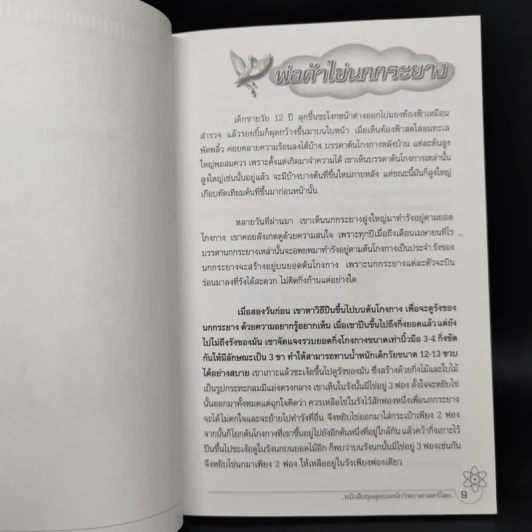 พ่อค้าไข่นกกระยาง
เด็กชายวัย 12 ปี ลุกขึ้นชะโงกหน้าต่างออกไปมองท้องฟ้าเหมือน
สำรวจ แล้วรอยยิ้มก็ผุดกว้างขึ้นมาบนใบหน้า เมื่อเห็นท้องฟ้าสดใสลมทะเล
พัดพลิ้ว ค่อยคลายความร้อนลงได้บ้าง บรรดาต้นโกงกางหลังบ้าน แต่ละต้นสูง
ใหญ่พอสมควร เพราะตั้งแต่เกิดมาจำความได้ เขาเห็นบรรดาต้นโกงกางเหล่านั้น
สูงใหญ่เช่นนั้นอยู่แล้ว จะมีบ้างบางต้นที่ขึ้นใหม่ภายหลัง แต่ขณะนี้มันก็สูงใหญ่
เกือบทัดเทียมต้นที่ขึ้นมาก่อนหน้านั้น
หลายวันที่ผ่านมา เขาเห็นนกกระยางฝูงใหญ่มาทำรังอยู่ตามยอด
โกงกาง เขาคอยสังเกตดูด้วยความสนใจ เพราะทุกปีเมื่อถึงเดือนเมษายนทีไร
บรรดานกกระยางเหล่านั้นจะอพยพมาทำรังอยู่ตามต้นโกงกางเป็นประจำ รังของ
นกกระยางจะสร้างอยู่บนยอดต้นโกงกาง เพราะนกกระยางแต่ละตัวจะบิน
ร่อนมาลงที่รังได้สะดวก ไม่ติดกิ่งก้านแต่อย่างใด
เมื่อสองวันก่อน เขาหาวิธีปีนขึ้นไปบนต้นโกงกาง เพื่อจะดูรังของ
นกกระยาง ด้วยความอยากรู้อยากเห็น เมื่อเขาปีนขึ้นไปถึงกิ่งยอดแล้ว แต่ยัง
ไปไม่ถึงรังของมัน เขาจัดแจงรวบยอดกิ่งโกงกางขนาดเท่านิ้วมือ 3-4 กิ่งขัด
กันให้มีลักษณะเป็น 3 ขา ทำให้สามารถทานน้ำหนักเด็กวัยขนาด 12-13 ขวบ
ได้อย่างสบาย เขาเกาะแล้วชะเง้อขึ้นไปดูรังของมัน ซึ่งสร้างด้วยกิ่งไม้และใบไม้
เป็นรูปกระทะกลมมีแอ่งตรงกลาง เขาเห็นในรังนั้นมีไข่อยู่ 3 ฟอง ตั้งใจจะหยิบไข่
นั้นออกมาทั้งหมดแต่ฉุกใจคิดว่า ควรเหลือไข่ในรังไว้สักฟองหนึ่งเพื่อนกกระยาง
จะได้ไม่ตกใจและจะย้ายไปทำรังที่อื่น จึงหยิบไข่ออกมาใส่กระเป๋าเพียง 2 ฟอง
จากนั้นก็โยกต้นโกงกางที่เขาขึ้นอยู่ไปยังอีกต้นหนึ่งที่อยู่ใกล้กัน แล้วคว้ากิ่งเกาะไว้
ปีนขึ้นไปชะเง้อดูในรังนกบนยอดไม้อีก ก็พบว่าบนรังนกนั้นมีไข่อยู่ 3 ฟองเช่นกัน
จึงหยิบไข่นกมาเพียง 2 ฟอง ให้เหลืออยู่ในรังเพียงฟองเดียว
...หนังสือชุดสุดยอดนักวิทยาศาสตร์ไทย...
9